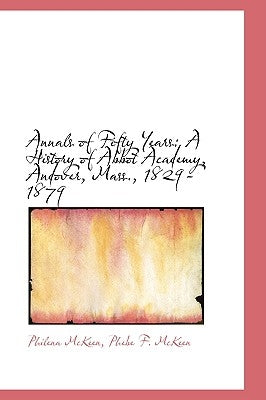 Annals of Fifty Years.; A
History of Abbot Academy,
Andover, Mass., 1829-
1879
Philena McKeen, Phebe F. McKeen